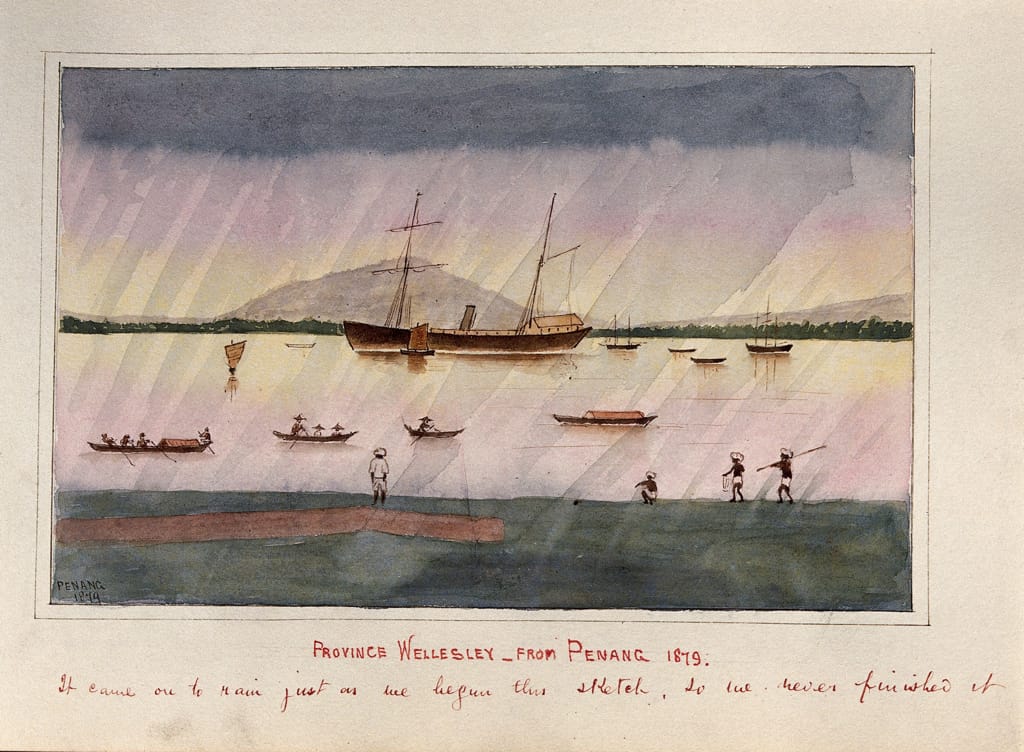 PENANG
1879
PROVINCE WELLESLEY _ FROM PENANG 1879.
It came on to rain just as we begun this sketch, so we never finished it